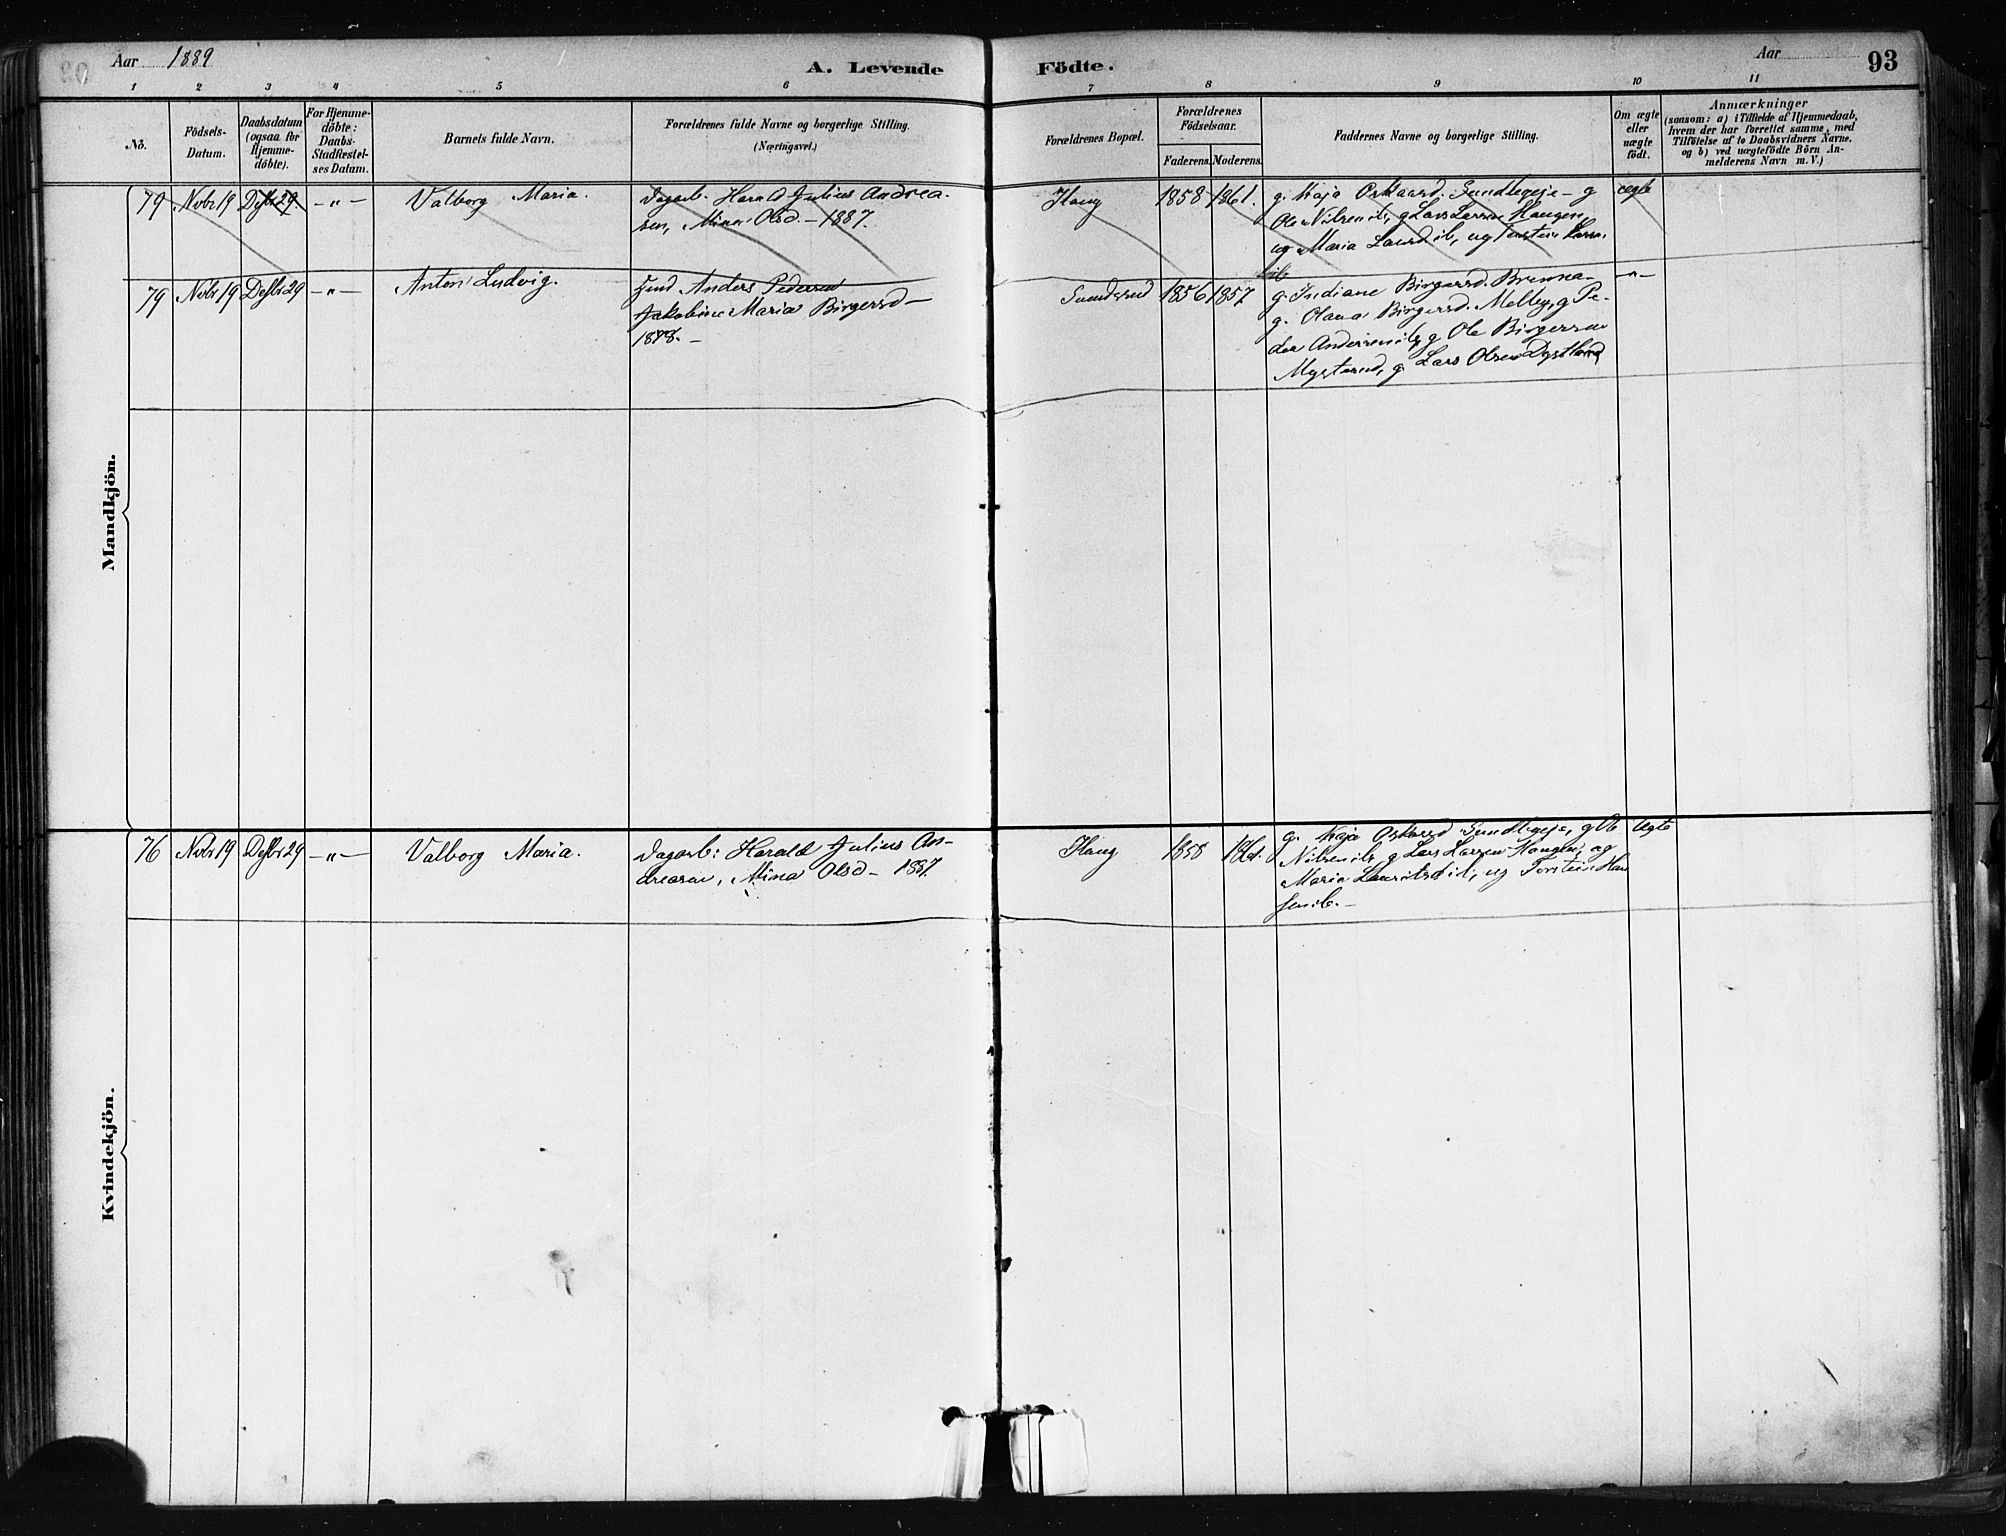 Aar 1889
A. Levende Födte.
Aar
93
1 2 3 4 5 6 7 8 9 10 11
No.
Födsels-
Datum.
Daabsdatum
(ogsaa for
Hjemme-
döbte).
For Hjemme-
döbte:
Daabs-
Stadfæstel-
ses Datum.
Barnets fulde Navn.
Forældrenes fulde Navne og borgerlige Stilling.
(Næringsvei.)
Forældrenes Bopæl.
Forældrenes
Födselsaar.
Faderens. Moderens.
Faddernes Navne og borgerlige Stilling.
Om ægte
eller
uægte
födt.
Anmærkninger
(saasom: a) i Tilfælde af Hjemmedaab,
hvem der har forrettet samme, med
Tilföielse af to Daabsvidners Navne.
og b) ved uægtefödte Börn An-
melderens Navn m. V.)
Mandkjön.
79 Novbr 19 Desbr 29. -"- Valborg Maria.
Dagarb. Harald Julius Andrea-
sen, Mina Olsd - 1887.
Haug 1858 1861.
g. Maja Oskarsd. Sundbyeje - g
Ole Nilsen ib, g Lars Larsen Haugen,
og Maria
ib
ægte
79 Novbr 19 Desbr 29 -"- Anton Ludvig.
Anders Pedersen
Jakobine Maria Birgersd -
1878. -
1856 1857
g. Birgersd. Brenna -
g. Olava Birgersd. Melby, g Pe-
der Andersen ib, g Ole Birgersen
g. Lars Olsen
-"-
Kvindekjön.
76 Novbr 19 Desbr 29 -"- Valborg Maria.
Dagarb: Harald Julius An-
dreasen, Mina Olsd - 1887.
Haug 1858 1861.
g. Maja Oskarsd Sundbyeje, g Ole
Nilsen ib, g Lars Larsen Haugen, og
Maria Lauritsd ib, og Torstein Han
sen ib. -
ægte